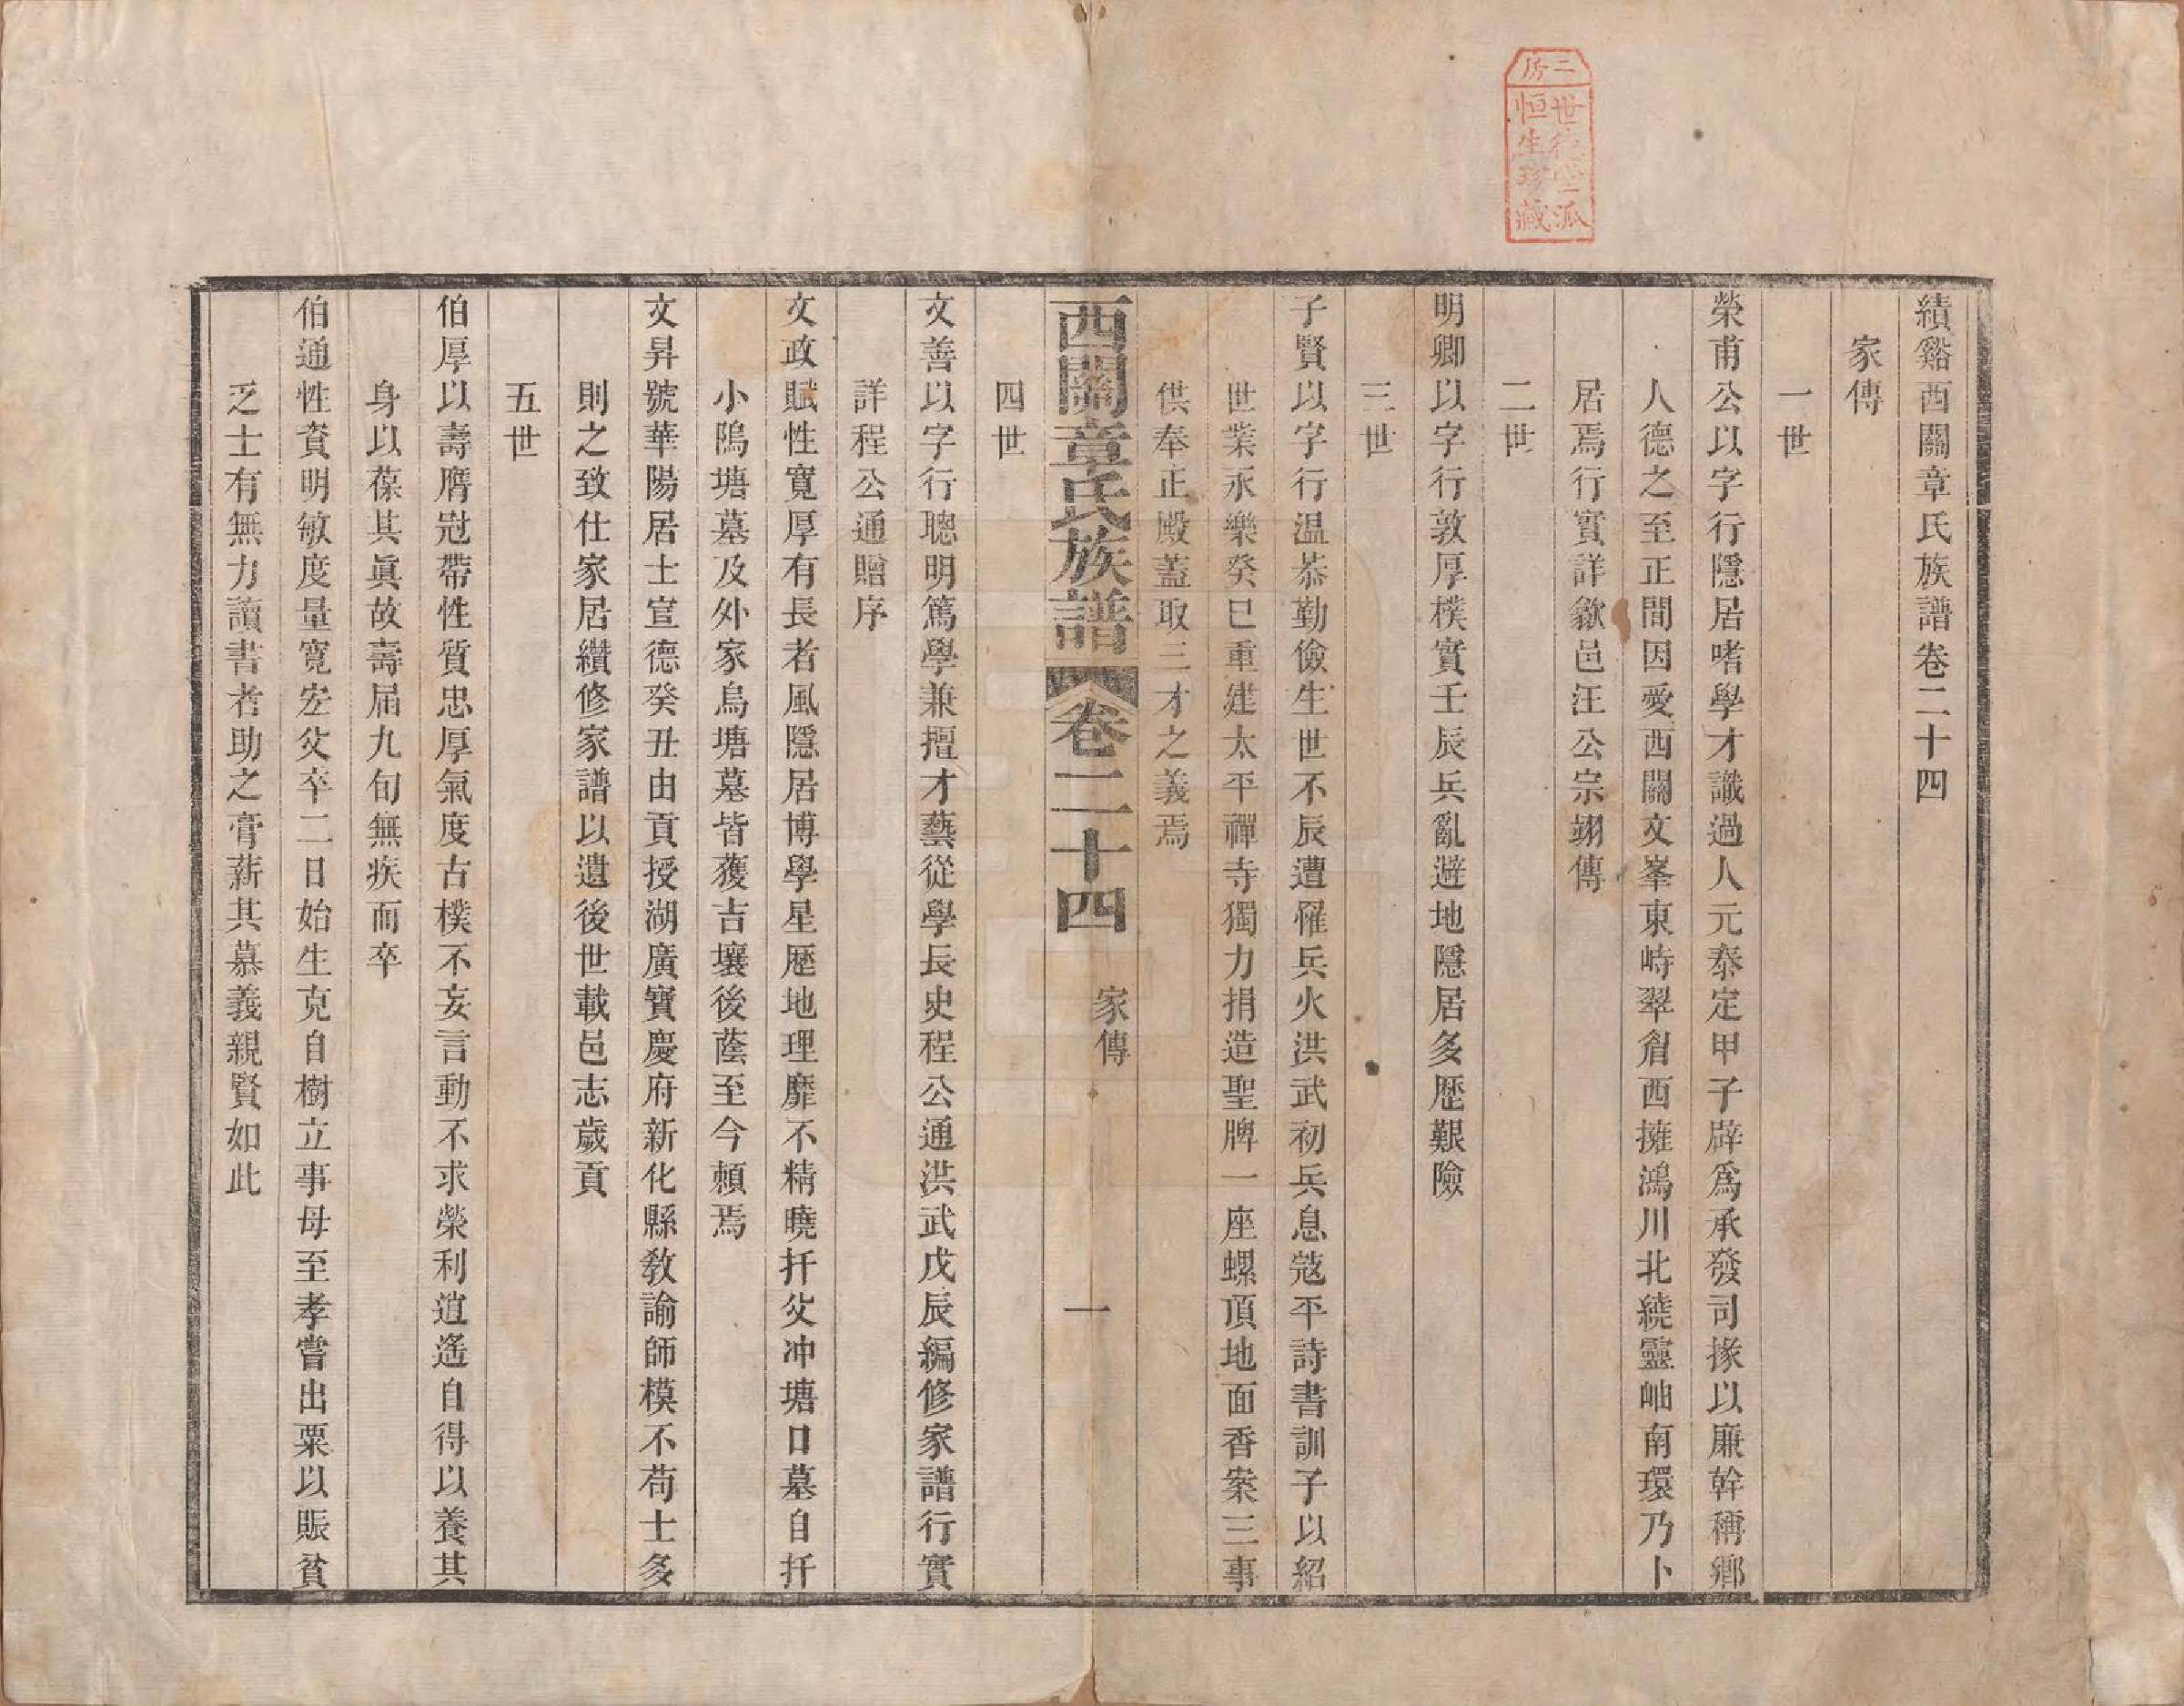 績谿西關章氏族譜卷二十四
家傳
一世
榮甫公以字行隱居嗜學才識過人元泰定甲子辟爲承發司掾以廉幹稱鄉
人德之至正間因愛西關文峯東峙翠眉西擁鴻川北繞靈岫南環乃卜
居焉行實詳歙邑汪公宗翊傳
二世
明卿以字行敦厚樸實壬辰兵亂避地隱居多歷艱險
三世
子賢以字行温恭勤儉生世不辰遭罹兵火洪武初兵息寇平詩書訓子以紹
世業永樂癸巳重建太平禪寺獨力捐造聖牌一座螺頂地面香案三事
供奉正殿蓋取三才之義焉
西關章氏族譜 卷二十四 家傳 一
四世
文善以字行聰明篤學兼擅才藝從學長史程公通洪武戊辰編修家譜行實
詳程公通贈序
文政賦性寬厚有長者風隱居博學星歷地理靡不精曉扦父冲塘口墓自扦
小隖塘墓及外家烏塘墓皆獲吉壤後蔭至今頼焉
文昇號華陽居士宣德癸丑由貢授湖廣寶慶府新化縣敎諭師模不苟士多
則之致仕家居纘修家譜以遺後世載邑志歲貢
五世
伯厚以壽膺冠帶性質忠厚氣度古樸不妄言動不求榮利逍遙自得以養其
身以葆其眞故壽屆九旬無疾而卒
伯通性資明敏度量寬宏父卒二日始生克自樹立事母至孝嘗出粟以賑貧
乏士有無力讀書者助之膏薪其慕義親賢如此
三房
世派
恒生珍藏